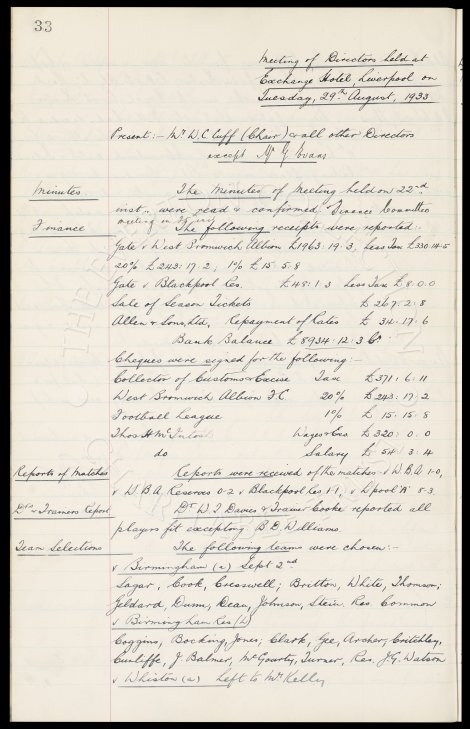 33
Meeting of Directors held at
Exchange Hotel, Liverpool on
Tuesday, 29th August, 1933
Present:- Mr W.C. Cuff (Chair) & all other Directors
except Mr G. Evans
Minutes. The Minutes of Meeting held on 22nd
inst. were read & confirmed. Finance Committee
meeting
Finance The following receipts were reported:-
Gate v West Bromwich Albion £1963.19.3, Less Tax £330.14.5
20% £243.17.2, 1% £15.5.8
Gate v Blackpool Res. £48.1.3 Less Tax £8.0.0
Sale of Season Tickets £267.2.8
Allen & Sons, Ltd, Repayment of Rates £34.17.6
Bank Balance £8934.12.3 Cr.
Cheques were signed for the following:-
Collector of Customs & Excise Tax £371.6.11
West Bromwich Albion F.C. 20% £243.17.2
Football League 1% £15.15.8
Thos H. McIntosh Wages & Exs £320.0.0
do Salary £54.3.4
Reports of Matches Reports were received of the matches v W.B.A. 1-0,
v W.B.A. Reserves 0-2, v Blackpool Res. 1-1, v L'pool "A" 5-3.
Dr's & Trainers Report Dr W.J. Davies & Trainer Cooke reported all
players fit excepting B.D. Williams.
Team Selections The following teams were chosen:-
v Birmingham (a) Sept 2nd
Sagar, Cook, Cresswell; Britton, White, Thomson;
Geldard, Dunn, Dean, Johnson, Stein. Res. Common
v Birmingham Res (h)
Coggins, Bocking, Jones; Clark, Gee, Archer; Critchley,
Cunliffe, J. Balmer, McGourty, Turner, Res. J.G. Watson
v Whiston (a) Left to Mr Kelly